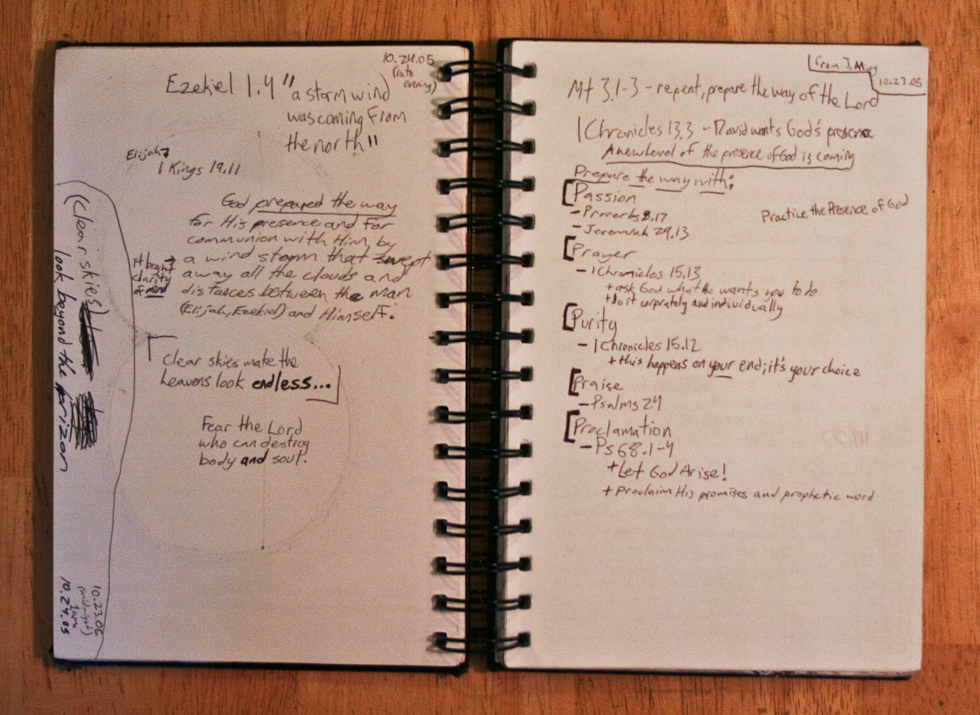 10.24.05
(late
evening)
Ezekiel 1.4 "a storm wind
was coming from
the north"
Elijah
1 Kings 19.11
God prepared the way
for His presence and for
communion with Him by
a wind storm that swept
away all the clouds and
distances between the man
(Elijah, Ezekiel) and Himself.
clarity
of mind
Clear skies make the
heavens look endless...
Fear the Lord
who can destroy
body and soul.
(clear skies)
look beyond the horizon
10.23.05
(midnight)
10.24.05
from J.
10.23.05
Mt 3.1-3 - repent, prepare the way of the Lord
1 Chronicles 13.3 - David wants God's presence
A new level of the presence of God is coming
Prepare the way with:
Passion
- Proverbs 8.17
- Jeremiah 29.13
Practice the Presence of God
Prayer
- 1 Chronicles 15.13
+ ask God what He wants you to do
+ do it corprately and individually
Purity
- 1 Chronicles 15.12
+ this happens on your end; it's your choice
Praise
- Psalms 24
Proclamation
- Ps 68.1-4
+ Let God Arise!
+ Proclaim His promises and prophetic word